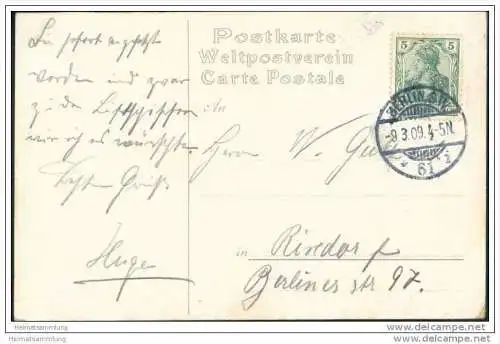 Postkarte
Weltpostverein
Carte Postale
5 5
BERLIN S.W.
-9.3.09.4-5N.
* 61 i
Bin sofort angesetzt
worden und zwar
zu den
wie ich es wünschte.
Besten Gruß
Hugo
An
Herrn W.
in Rixdorf
Berliner str 97.
Heimatsammlung
Heimatsammlung